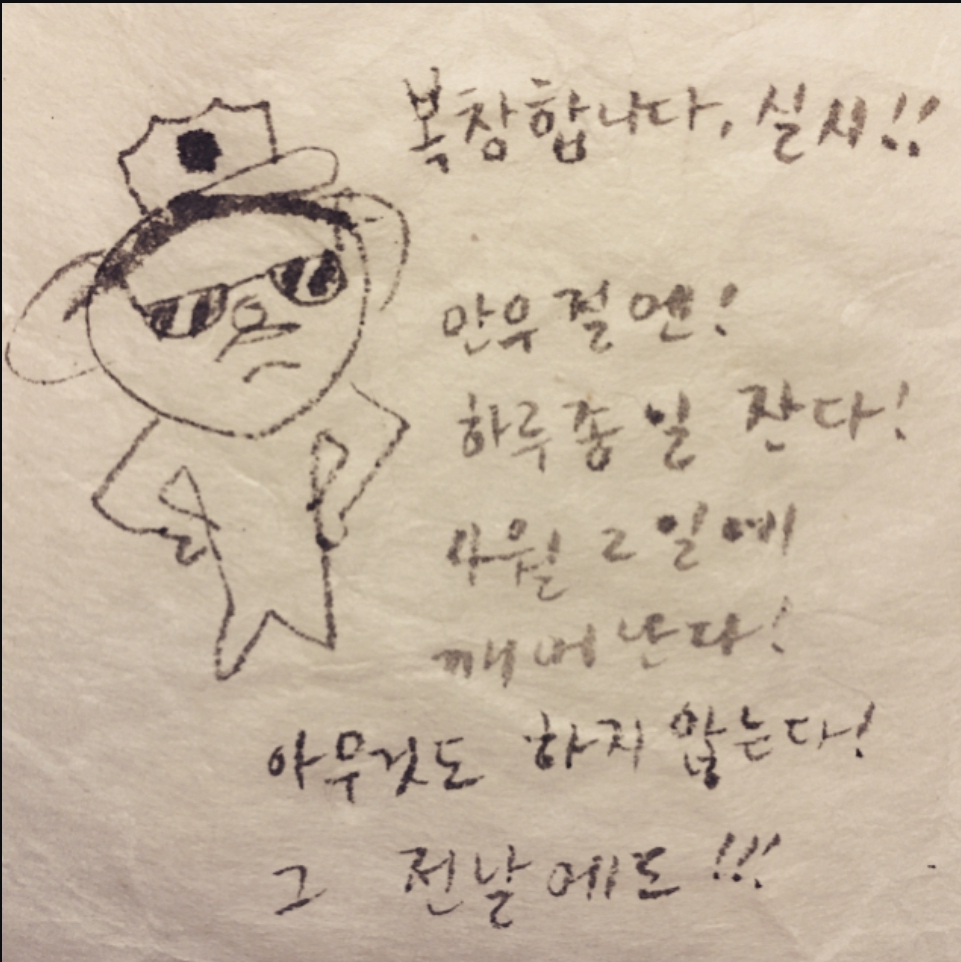 복창합니다, 실시!!
만우절엔!
하루종일 잔다!
사월 2일에
깨어난다!
아무것도 하지 않는다!
그 전날에도!!!